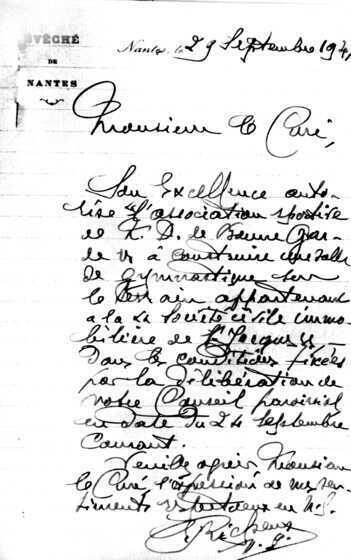 ÉVÊCHÉ
DE
NANTES
Nantes, le 29 Septembre 19
Monsieur le Curé,
Son Excellence auto-
rise "l'association sportive
de N. D. de Bonne Gar-
de" à construire une salle
de gymnastique sur
le terrain appartenant
à la Société civile immo-
bilière de St Jacques
dans les conditions fixées
par la délibération de
votre Conseil paroissial
en date du 24 Septembre
Courant.
Veuillez agréer, Monsieur
le Curé, l'expression de mes sen-
timents respectueux en N. S.